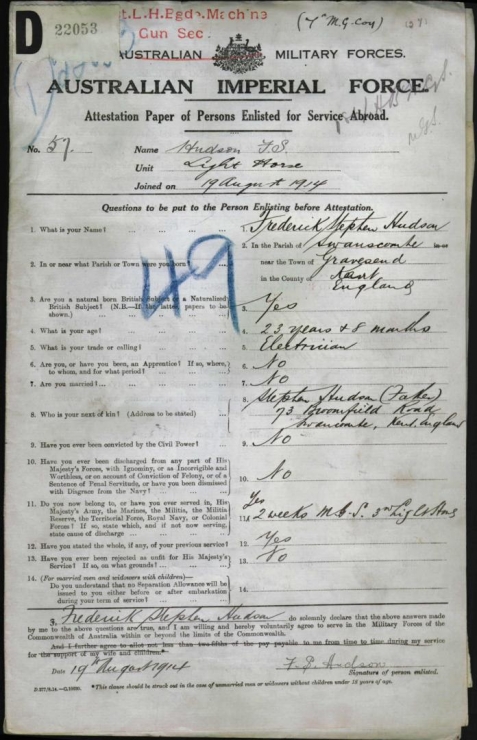 t. L. H. Bgde. Machine
Gun Sec.
(7th M.G. Coy)
D 22053
AUSTRALIAN MILITARY FORCES.
AUSTRALIAN IMPERIAL FORCE.
Attestation Paper of Persons Enlisted for Service Abroad.
No. 57. Name Hudson F.S.
Unit Light Horse
Joined on 19 August 1914
Questions to be put to the Person Enlisting before Attestation.
1. What is your Name? 1. Frederick Stephen Hudson
2. In or near what Parish or Town were you born? 2. In the Parish of Swanscombe in or
near the Town of Gravesend
in the County of Kent
England
49
3. Are you a natural born British Subject or a Naturalized
British Subject? (N.B.—If the latter, papers to be
shown.) 3. Yes
4. What is your age? 4. 23 years & 8 months
5. What is your trade or calling? 5. Electrician
6. Are you, or have you been, an Apprentice? If so, where,
to whom, and for what period? 6. No
7. Are you married? 7. No
8. Who is your next of kin? (Address to be stated) 8. Stephen Hudson (Father)
73 Broomfield Road
Swanscombe, Kent, England
9. Have you ever been convicted by the Civil Power? 9. No
10. Have you ever been discharged from any part of His
Majesty's Forces, with Ignominy, or as Incorrigible and
Worthless, or on account of Conviction of Felony, or of a
Sentence of Penal Servitude, or have you been dismissed
with Disgrace from the Navy? 10. No
11. Do you now belong to, or have you ever served in, His
Majesty's Army, the Marines, the Militia, the Militia
Reserve, the Territorial Force, Royal Navy, or Colonial
Forces? If so, state which, and if not now serving,
state cause of discharge 11. Yes
2 weeks M.G.S. 3rd Light Horse
12. Have you stated the whole, if any, of your previous service? 12. Yes
13. Have you ever been rejected as unfit for His Majesty's
Service? If so, on what grounds? 13. No
14. (For married men and widowers with children)—
Do you understand that no Separation Allowance will be
issued to you either before or after embarkation
during your term of service? 14.
I, Frederick Stephen Hudson do solemnly declare that the above answers made
by me to the above questions are true, and I am willing and hereby voluntarily agree to serve in the Military Forces of the
Commonwealth of Australia within or beyond the limits of the Commonwealth.
And I further agree to allot not less than two-fifths of the pay payable to me from time to time during my service
for the support of my wife and children.*
Date 19th August 1914 F. S. Hudson
Signature of person enlisted.
*This clause should be struck out in the case of unmarried men or widowers without children under 18 years of age.